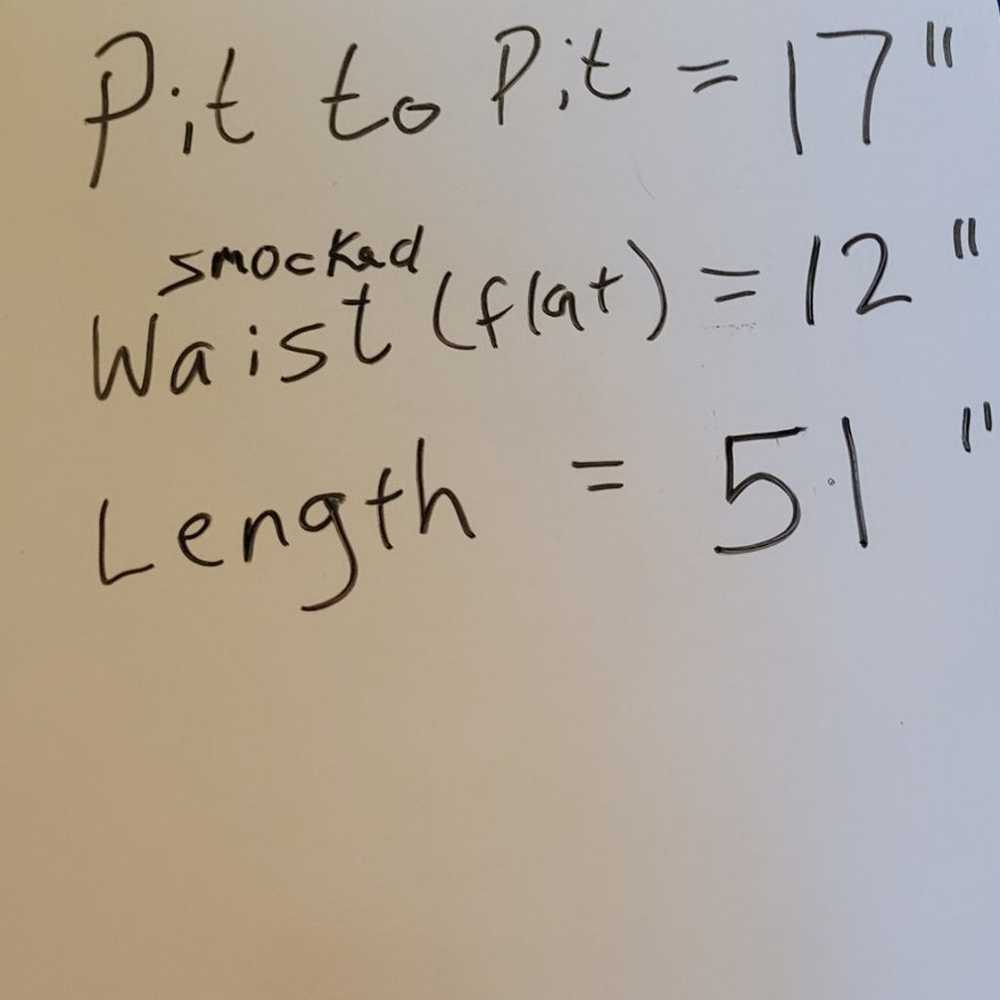 Pit to Pit = 17"
smocked
Waist (flat) = 12"
Length = 51"